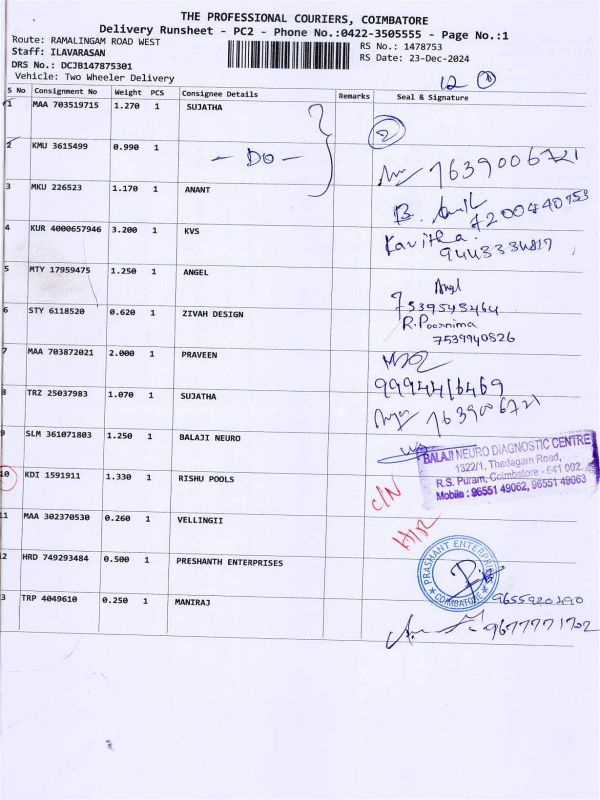 THE PROFESSIONAL COURIERS, COIMBATORE
Delivery Runsheet - PC2 - Phone No.:0422-3505555 - Page No.:1
Route: RAMALINGAM ROAD WEST RS No.: 1478753
Staff: ILAVARASAN RS Date: 23-Dec-2024
DRS No.: DCJB147875301
Vehicle: Two Wheeler Delivery
12 ①
S No Consignment No Weight PCS Consignee Details Remarks Seal & Signature
1 MAA 703519715 1.270 1 SUJATHA
2
2 KMU 3615499 0.990 1 - DO -
7639006721
3 MKU 226523 1.170 1 ANANT
7200440753
4 KUR 4000657946 3.200 1 KVS Kavitha
9443334817
5 MTY 17959475 1.250 1 ANGEL Angel
7539548464
6 STY 6118520 0.620 1 ZIVAH DESIGN R.Poornima
7539940826
7 MAA 703872021 2.000 1 PRAVEEN
9994416469
8 TRZ 25037983 1.070 1 SUJATHA 7639006721
9 SLM 361071803 1.250 1 BALAJI NEURO
BALAJI NEURO DIAGNOSTIC CENTRE
1322/1, Thedagain Road,
R.S. Puram, Coimbatore - 641 002.
Mobile : 96551 49062, 96551 49063
10 KDI 1591911 1.330 1 RISHU POOLS C/N
11 MAA 302370530 0.260 1 VELLINGII
2 HRD 749293484 0.500 1 PRESHANTH ENTERPRISES
PRASHANT ENTERPRISES
COIMBATORE
3 TRP 4049610 0.250 1 MANIRAJ
9677771702